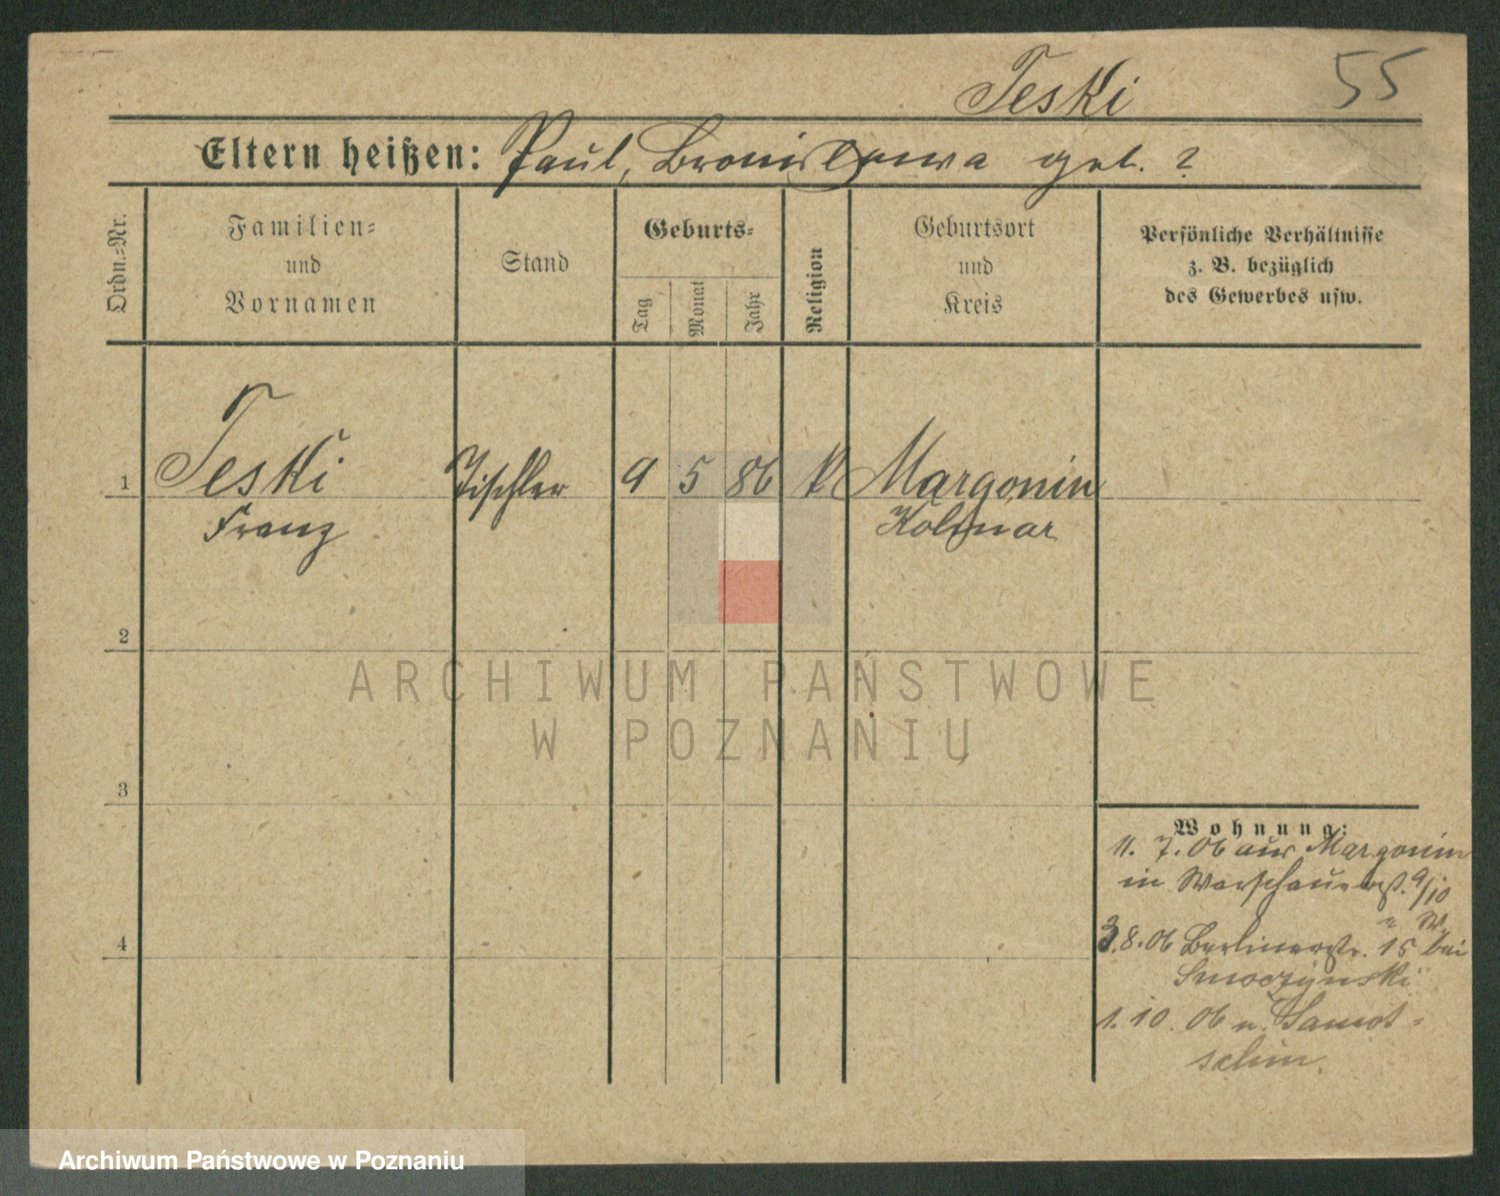 Teski
55
Eltern heißen: Paul, Bronisława geb. ?
Ordn.-Nr.
Familien-
und
Vornamen
Stand
Geburts-
Tag
Monat
Jahr
Religion
Geburtsort
und
Kreis
Persönliche Verhältnisse
z. B. bezüglich
des Gewerbes usw.
1
Teski
Franz
Tischler
9
5
86
k
Margonin
Kolmar
2
3
4
Wohnung:
11. 7. 06 aus Margonin
in Warschauerstr. 9/10
3.8.06 Berlinerstr. 15 bei
Smoczynski
1. 10. 06 n. Samot-
schin.
ARCHIWUM PAŃSTWOWE
W POZNANIU
Archiwum Państwowe w Poznaniu